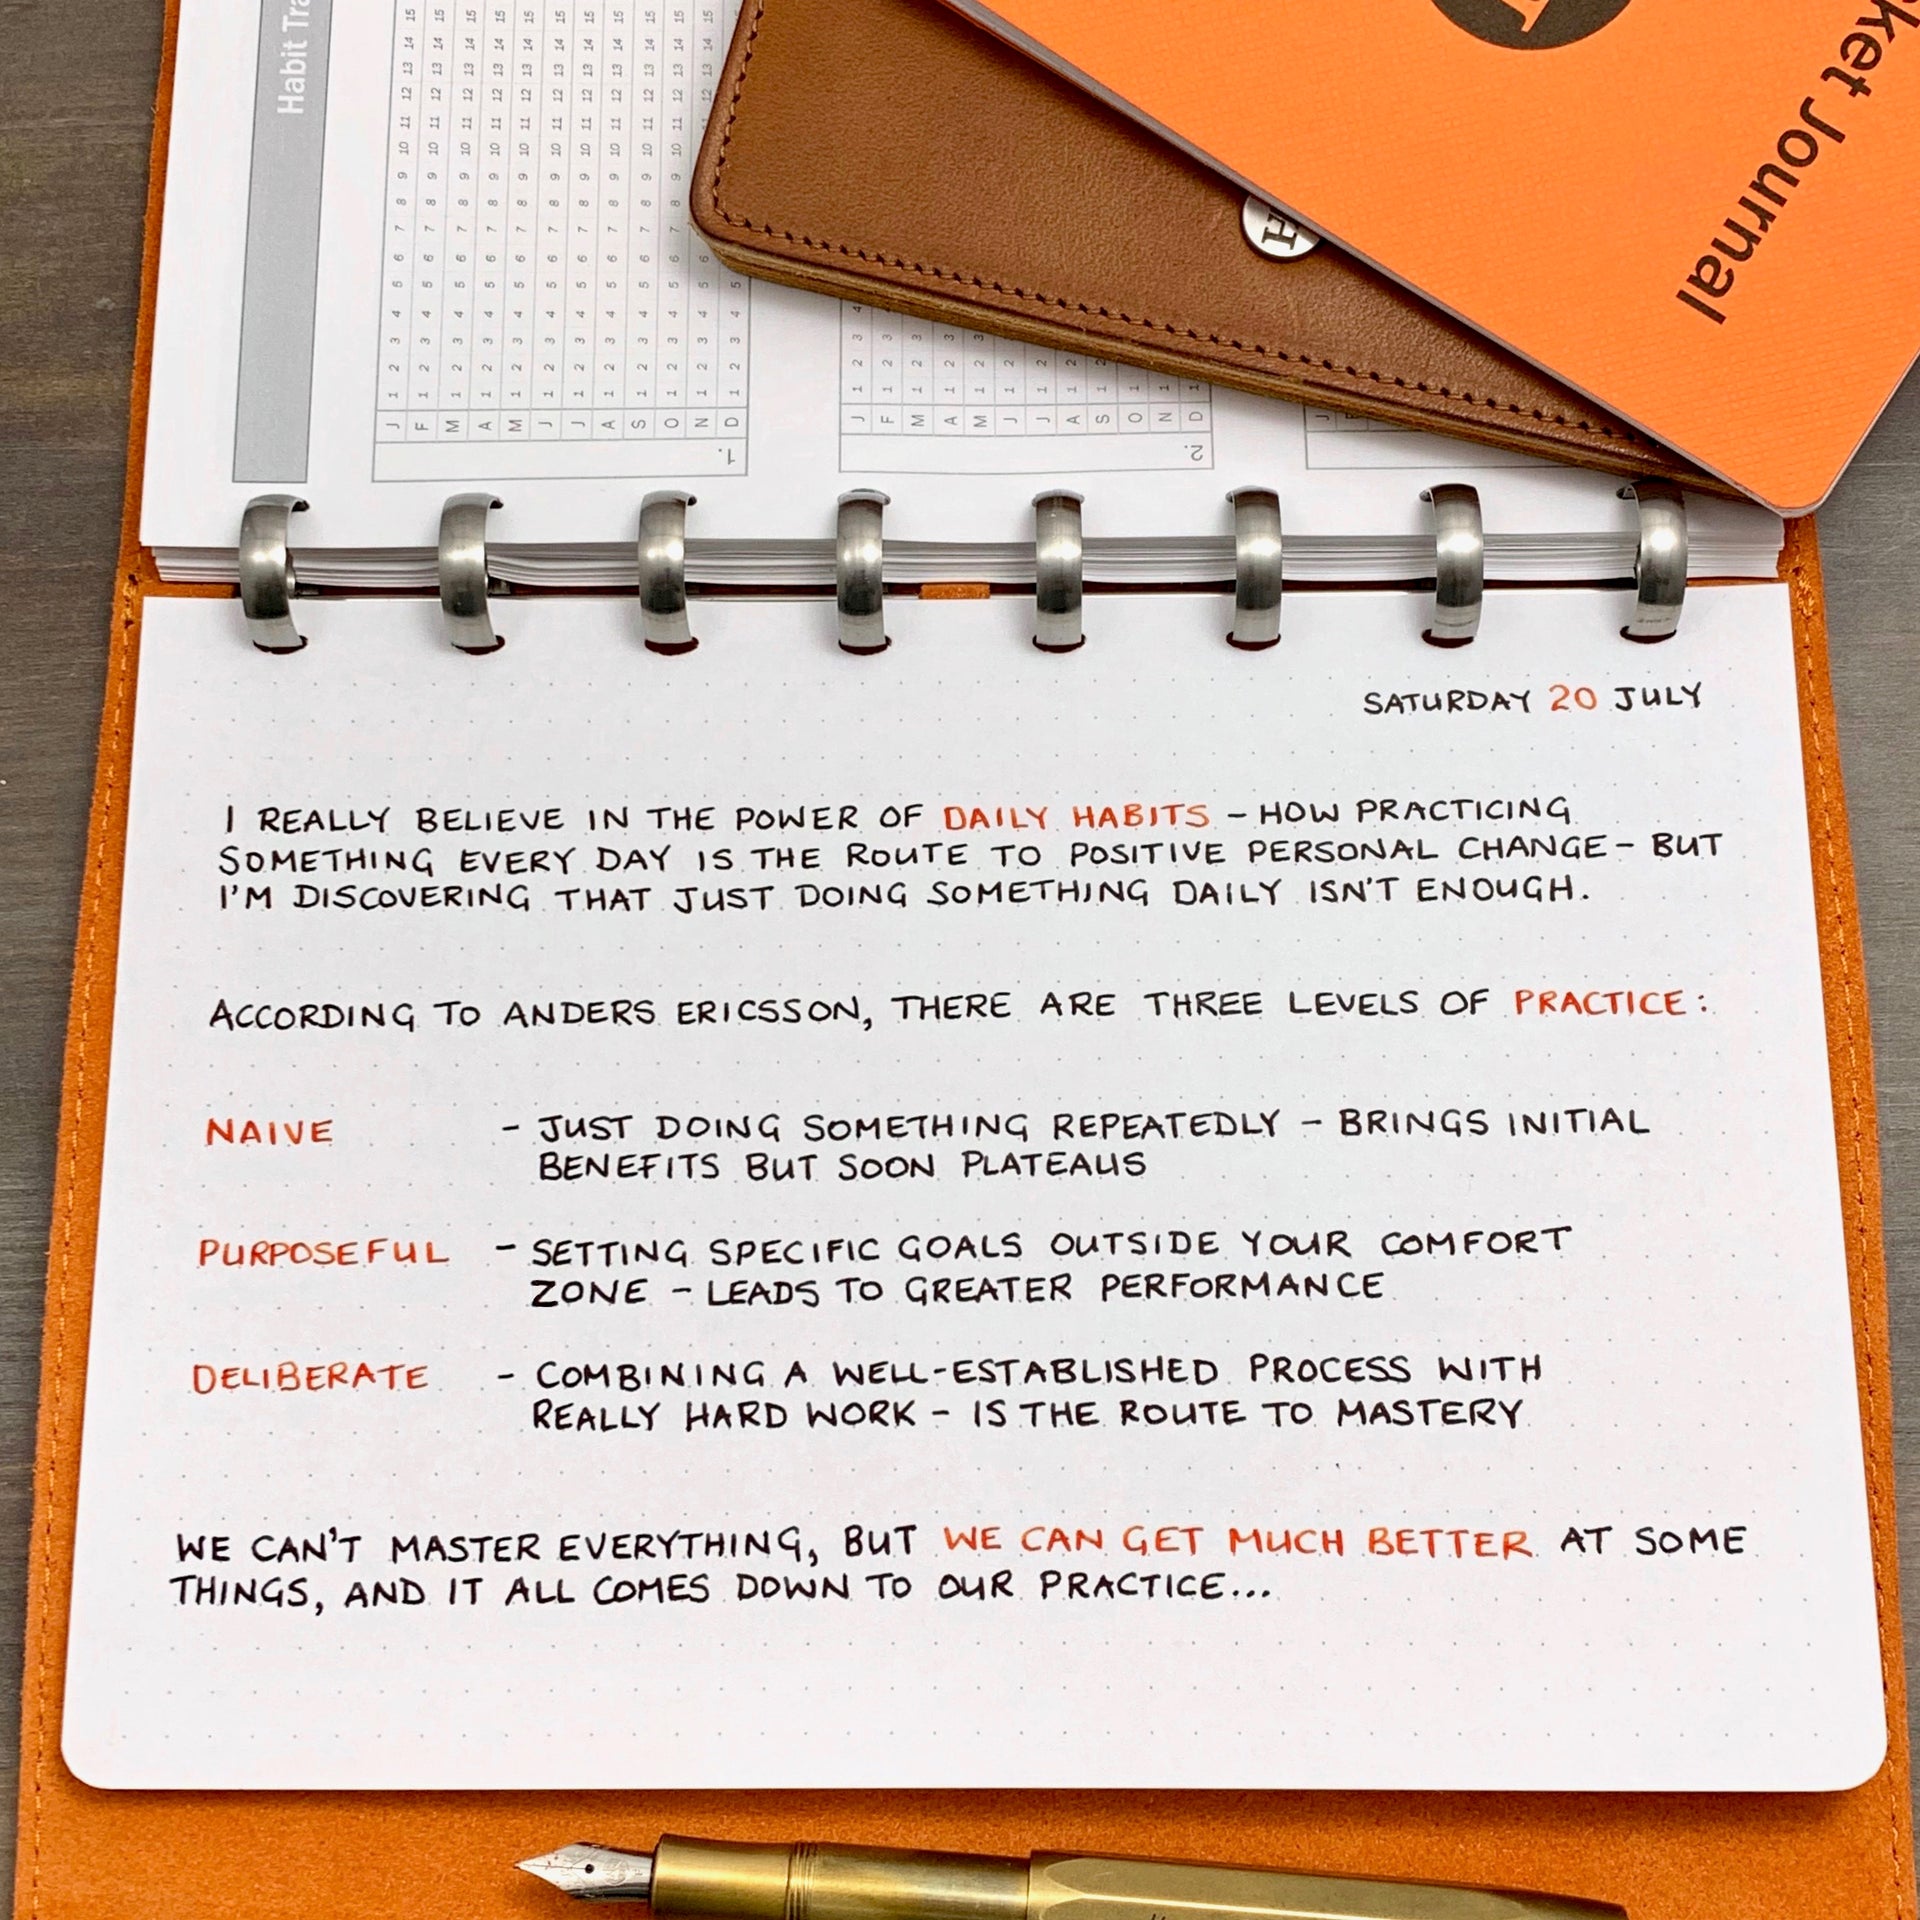 Habit
15 15 15 15 15 15 15 15 15 15 15
14 14 14 14 14 14 14 14 14 14 14
13 13 13 13 13 13 13 13 13 13 13
12 12 12 12 12 12 12 12 12 12 12
11 11 11 11 11 11 11 11 11 11
10 10 10 10 10 10 10 10 10 10
9 9 9 9 9 9 9 9 9 9
8 8 8 8 8 8 8 8 8 8
7 7 7 7 7 7 7 7 7 7
6 6 6 6 6 6 6 6 6 6 6
5 5 5 5 5 5 5 5 5 5 5 5
4 4 4 4 4 4 4 4 4 4 4 4
3 3 3 3 3 3 3 3 3 3 3 3
2 2 2 2 2 2 2 2 2 2 2 2
1 1 1 1 1 1 1 1 1 1 1 1
J F M A M J J A S O N D
1.
3 3 3 3 3
2 2 2 2 2 2 2 2
1 1 1 1 1 1 1 1 1 1 1 1
J F M A M J J A S O N D
2.
H
Journal
SATURDAY 20 JULY
I REALLY BELIEVE IN THE POWER OF DAILY HABITS – HOW PRACTICING
SOMETHING EVERY DAY IS THE ROUTE TO POSITIVE PERSONAL CHANGE – BUT
I'M DISCOVERING THAT JUST DOING SOMETHING DAILY ISN'T ENOUGH.
ACCORDING TO ANDERS ERICSSON, THERE ARE THREE LEVELS OF PRACTICE:
NAIVE – JUST DOING SOMETHING REPEATEDLY – BRINGS INITIAL
BENEFITS BUT SOON PLATEAUS
PURPOSEFUL – SETTING SPECIFIC GOALS OUTSIDE YOUR COMFORT
ZONE – LEADS TO GREATER PERFORMANCE
DELIBERATE – COMBINING A WELL-ESTABLISHED PROCESS WITH
REALLY HARD WORK – IS THE ROUTE TO MASTERY
WE CAN'T MASTER EVERYTHING, BUT WE CAN GET MUCH BETTER AT SOME
THINGS, AND IT ALL COMES DOWN TO OUR PRACTICE...